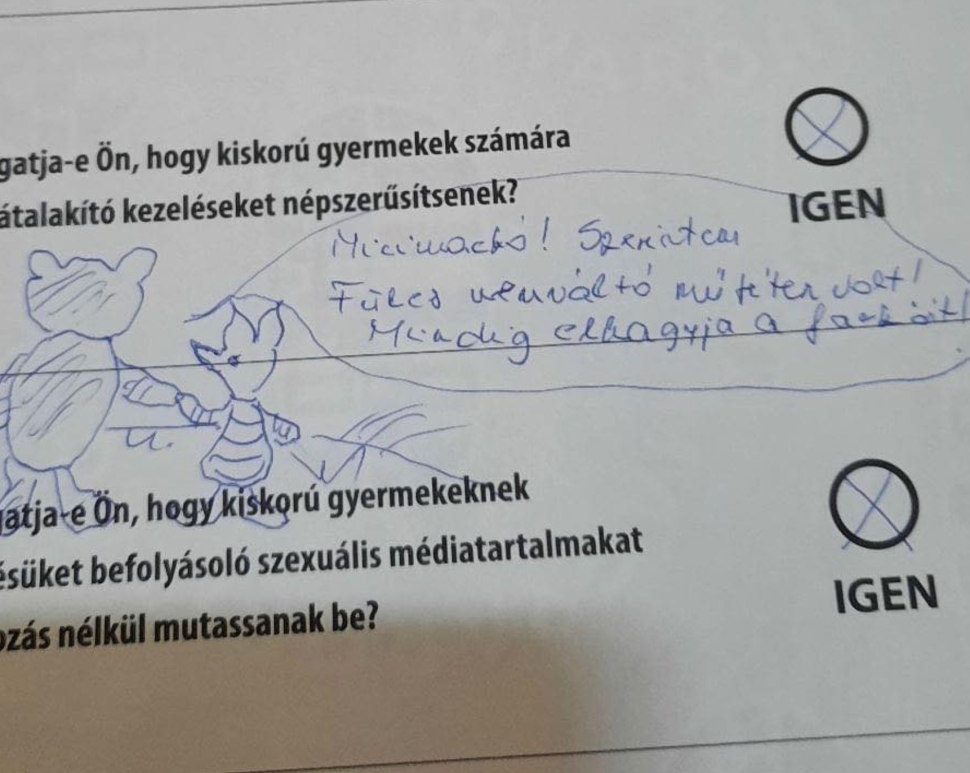 gatja-e Ön, hogy kiskorú gyermekek számára
átalakító kezeléseket népszerűsítsenek?
IGEN
Micimackó! Szerintem
Füles nemváltó műtéten volt!
Mindig elhagyja a farkát!
u.
gatja-e Ön, hogy kiskorú gyermekeknek
ésüket befolyásoló szexuális médiatartalmakat
ozás nélkül mutassanak be?
IGEN